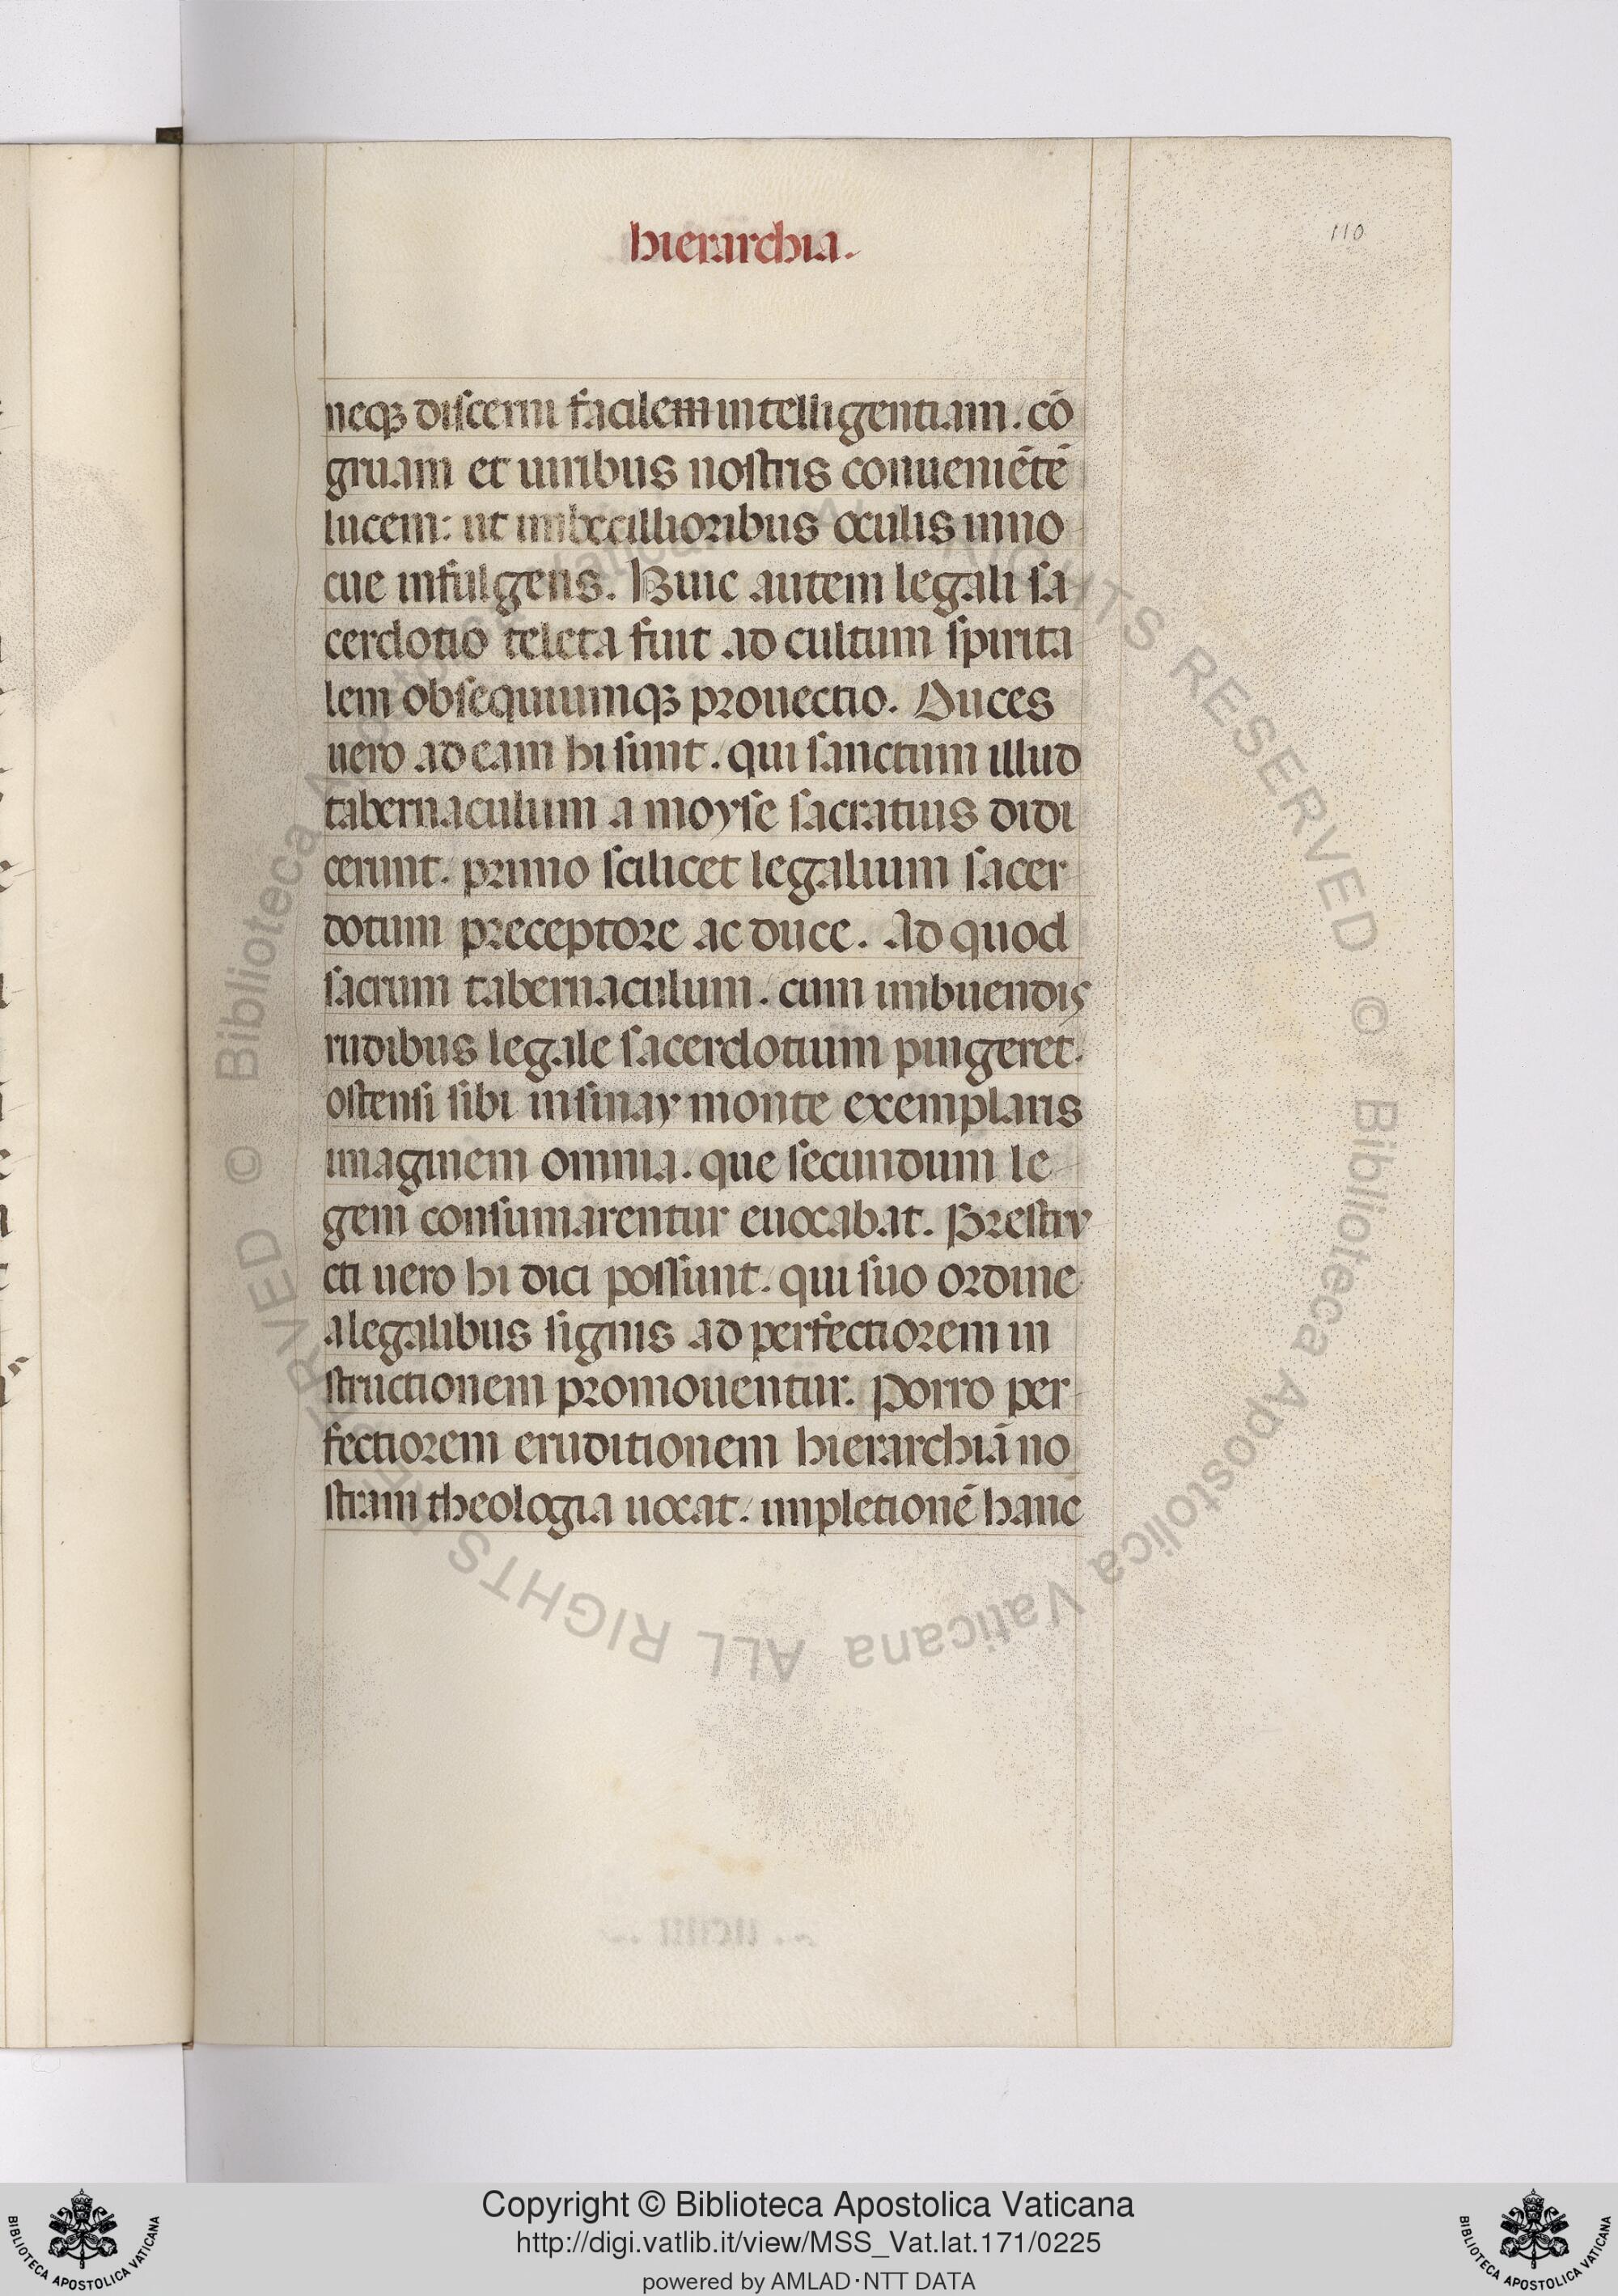 hierarchia.
110
neqꝫ discerni facilem intelligentiam. cō
gruam et uiribus nostris conueniētē
lucem: ut imbecillioribus oculis inno
cue infulgens. Huic autem legali sa
cerdotio teleta fuit ad cultum spirita
lem obsequiumqꝫ prouectio. Duces
uero ad eam hi sunt. qui sanctum illud
tabernaculum a moyse sacratius didi
cerunt. primo scilicet legalium sacer
dotum preceptore ac duce. Ad quod
sacrum tabernaculum. cum imbuendis
rudibus legale sacerdotium pingeret.
ostensi sibi insinay monte exemplaris
imaginem omnia. que secundum le
gem consumarentur euocabat. Prestru
cti uero hi dici possunt. qui suo ordine
a legalibus signis ad perfectiorem in
structionem promouentur. Porro per
fectiorem eruditionem hierarchiā no
stram theologia uocat. impletionē hanc
© Biblioteca Apostolica Vaticana ALL RIGHTS RESERVED
© Biblioteca Apostolica Vaticana ALL RIGHTS RESERVED
Copyright © Biblioteca Apostolica Vaticana
http://digi.vatlib.it/view/MSS_Vat.lat.171/0225
powered by AMLAD·NTT DATA
BIBLIOTECA APOSTOLICA VATICANA
BIBLIOTECA APOSTOLICA VATICANA